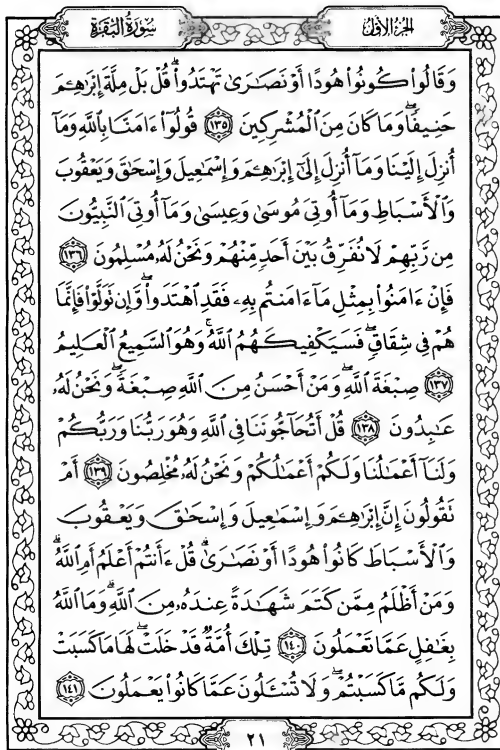 سُورَةُ البَقَرَةِ
الجُزْءُ الأَوَّلُ
وَقَالُوا۟ كُونُوا۟ هُودًا أَوْ نَصَـٰرَىٰ تَهْتَدُوا۟ۗ قُلْ بَلْ مِلَّةَ إِبْرَٰهِـۧمَ
حَنِيفًاۖ وَمَا كَانَ مِنَ ٱلْمُشْرِكِينَ ١٣٥ قُولُوٓا۟ ءَامَنَّا بِٱللَّهِ وَمَآ
أُنزِلَ إِلَيْنَا وَمَآ أُنزِلَ إِلَىٰٓ إِبْرَٰهِـۧمَ وَإِسْمَـٰعِيلَ وَإِسْحَـٰقَ وَيَعْقُوبَ
وَٱلْأَسْبَاطِ وَمَآ أُوتِىَ مُوسَىٰ وَعِيسَىٰ وَمَآ أُوتِىَ ٱلنَّبِيُّونَ
مِن رَّبِّهِمْ لَا نُفَرِّقُ بَيْنَ أَحَدٍ مِّنْهُمْ وَنَحْنُ لَهُۥ مُسْلِمُونَ ١٣٦
فَإِنْ ءَامَنُوا۟ بِمِثْلِ مَآ ءَامَنتُم بِهِۦ فَقَدِ ٱهْتَدَوا۟ۖ وَّإِن تَوَلَّوْا۟ فَإِنَّمَا
هُمْ فِى شِقَاقٍۖ فَسَيَكْفِيكَهُمُ ٱللَّهُۚ وَهُوَ ٱلسَّمِيعُ ٱلْعَلِيمُ
١٣٧ صِبْغَةَ ٱللَّهِۖ وَمَنْ أَحْسَنُ مِنَ ٱللَّهِ صِبْغَةًۖ وَنَحْنُ لَهُۥ
عَـٰبِدُونَ ١٣٨ قُلْ أَتُحَآجُّونَنَا فِى ٱللَّهِ وَهُوَ رَبُّنَا وَرَبُّكُمْ
وَلَنَآ أَعْمَـٰلُنَا وَلَكُمْ أَعْمَـٰلُكُمْ وَنَحْنُ لَهُۥ مُخْلِصُونَ ١٣٩ أَمْ
تَقُولُونَ إِنَّ إِبْرَٰهِـۧمَ وَإِسْمَـٰعِيلَ وَإِسْحَـٰقَ وَيَعْقُوبَ
وَٱلْأَسْبَاطَ كَانُوا۟ هُودًا أَوْ نَصَـٰرَىٰۗ قُلْ ءَأَنتُمْ أَعْلَمُ أَمِ ٱللَّهُۗ
وَمَنْ أَظْلَمُ مِمَّن كَتَمَ شَهَـٰدَةً عِندَهُۥ مِنَ ٱللَّهِۗ وَمَا ٱللَّهُ
بِغَـٰفِلٍ عَمَّا تَعْمَلُونَ ١٤٠ تِلْكَ أُمَّةٌ قَدْ خَلَتْۖ لَهَا مَا كَسَبَتْ
وَلَكُم مَّا كَسَبْتُمْۖ وَلَا تُسْـَٔلُونَ عَمَّا كَانُوا۟ يَعْمَلُونَ ١٤١
٢١